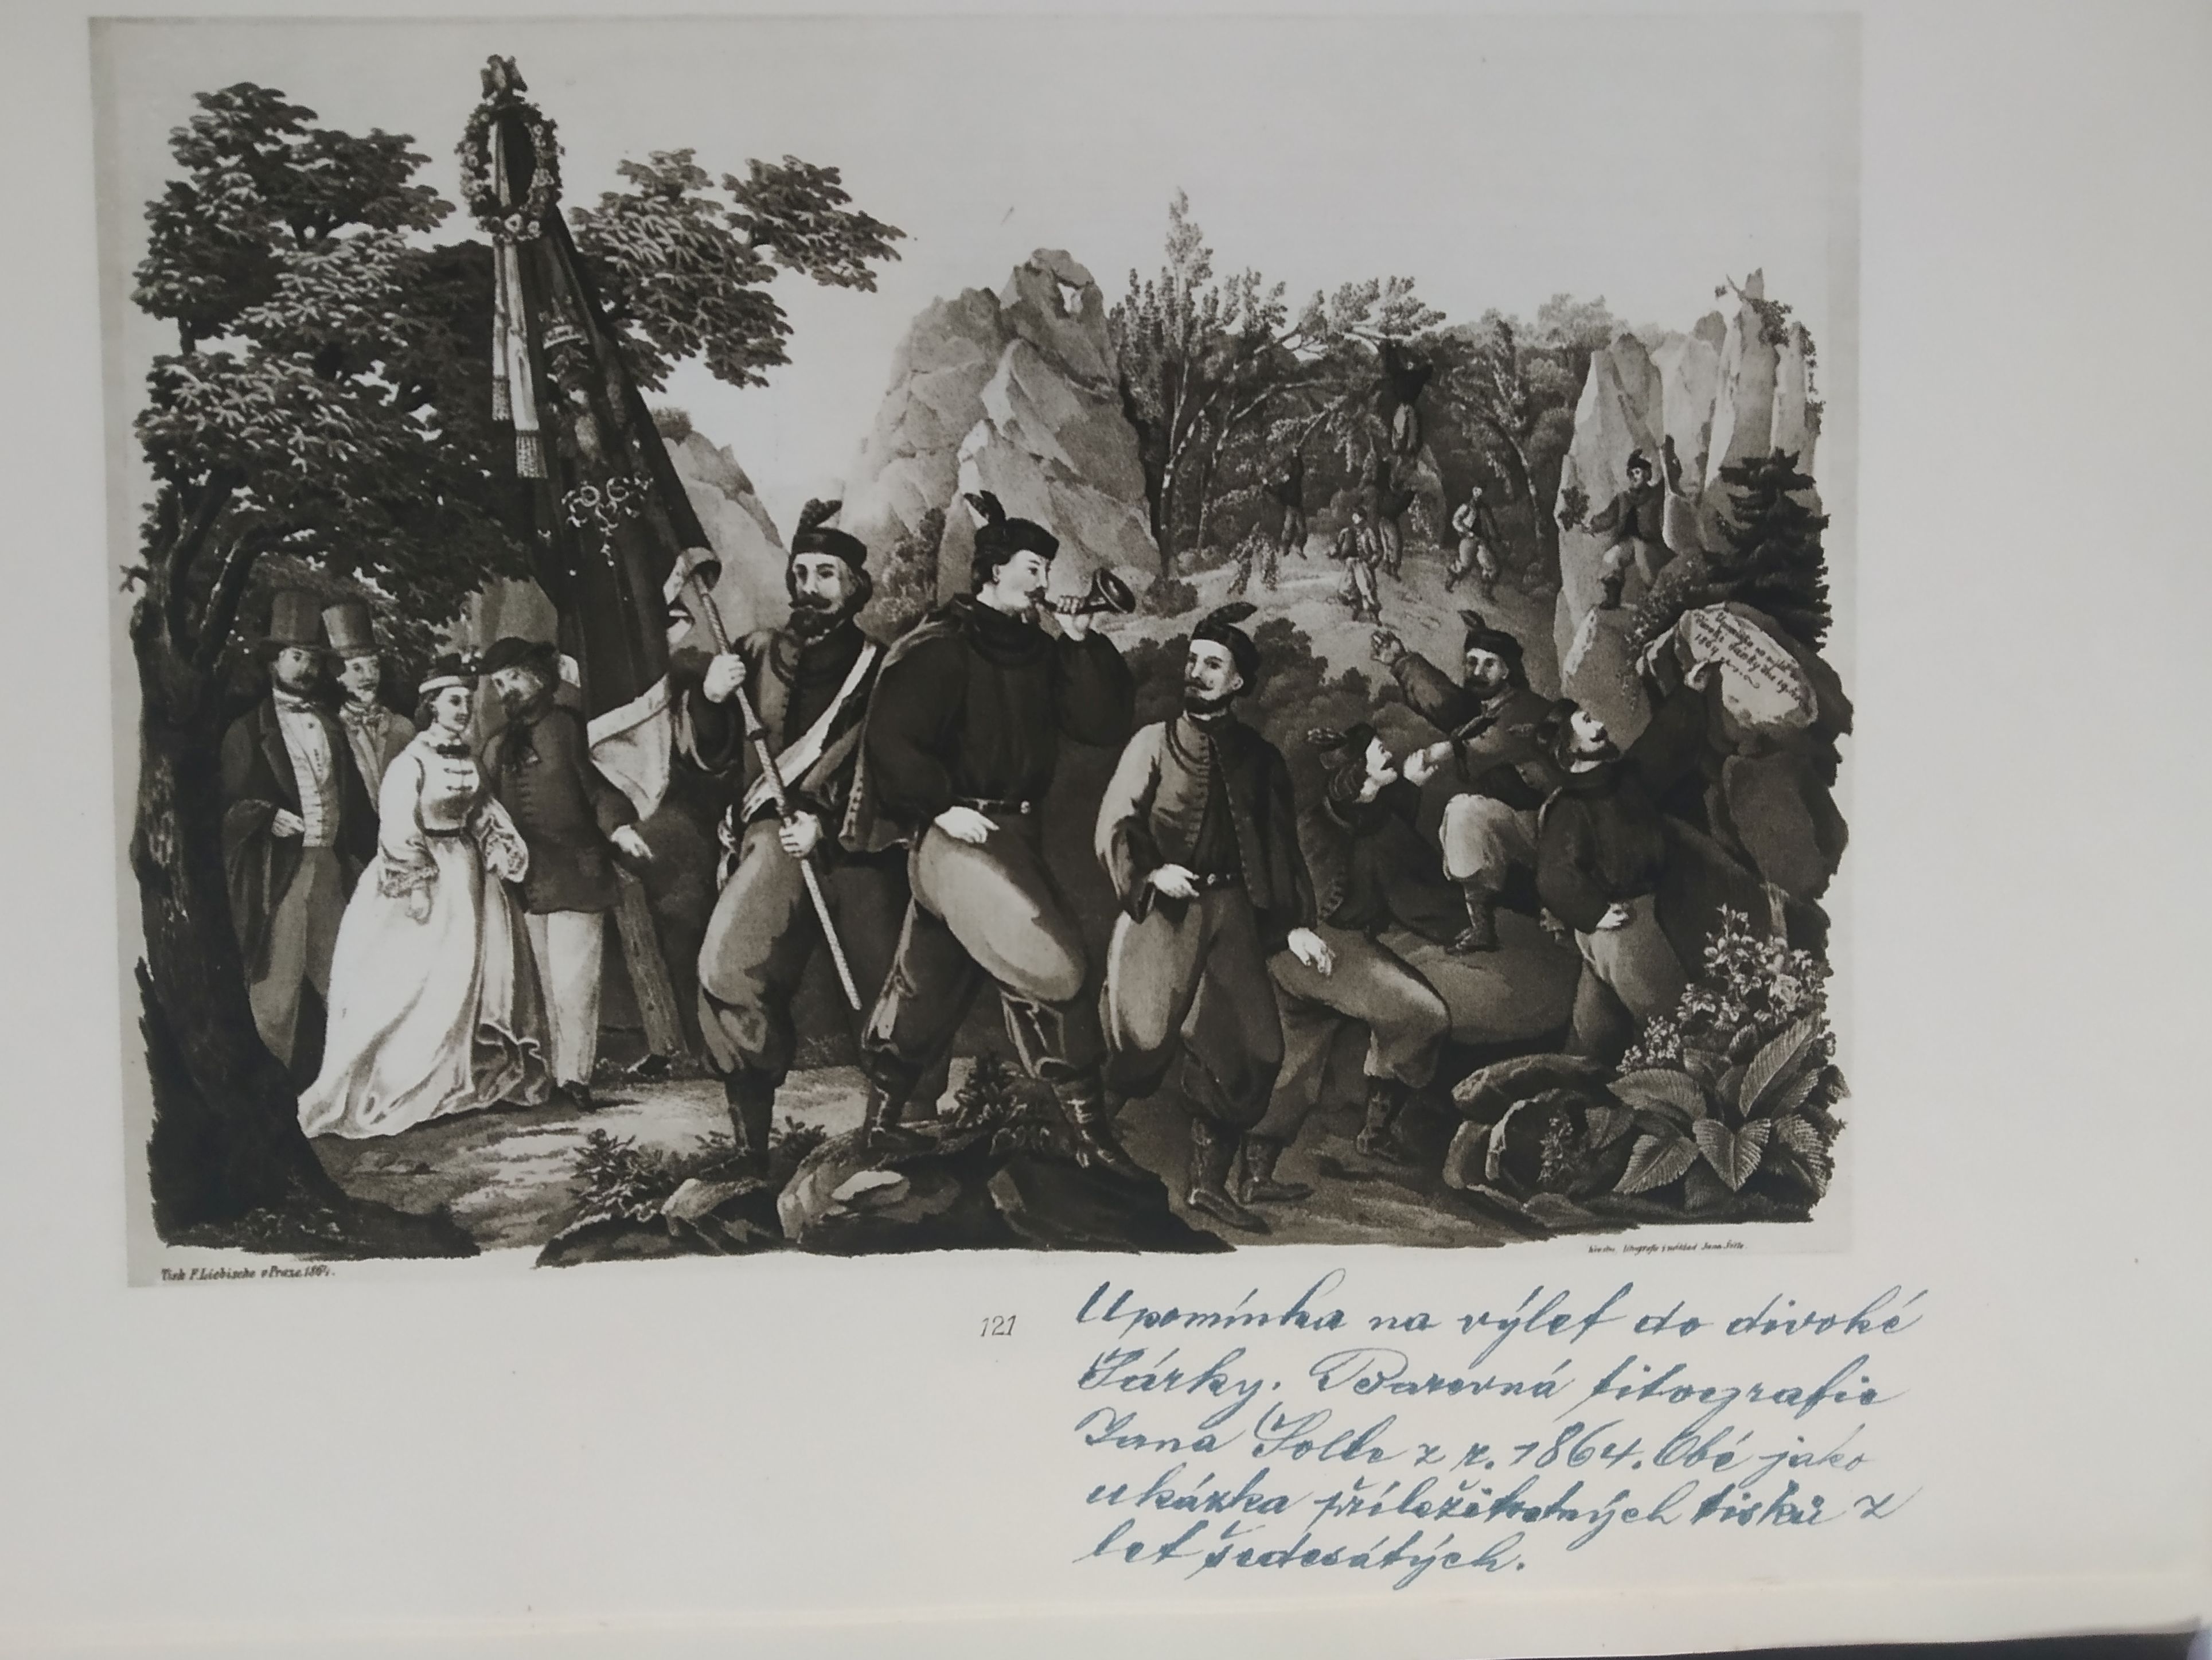 Upomínka na výlet do
Divoké Šárky dne 19.
1864
Tisk F. Liebische v Praze. 1864.
Kreslu. litografie i náklad Jana Šolle.
121
Upomínka na výlet do divoké
Šárky. Barevná litografie
Jana Šolle z r. 1864. Obé jako
ukázka příležitostných tisků z
let šedesátých.